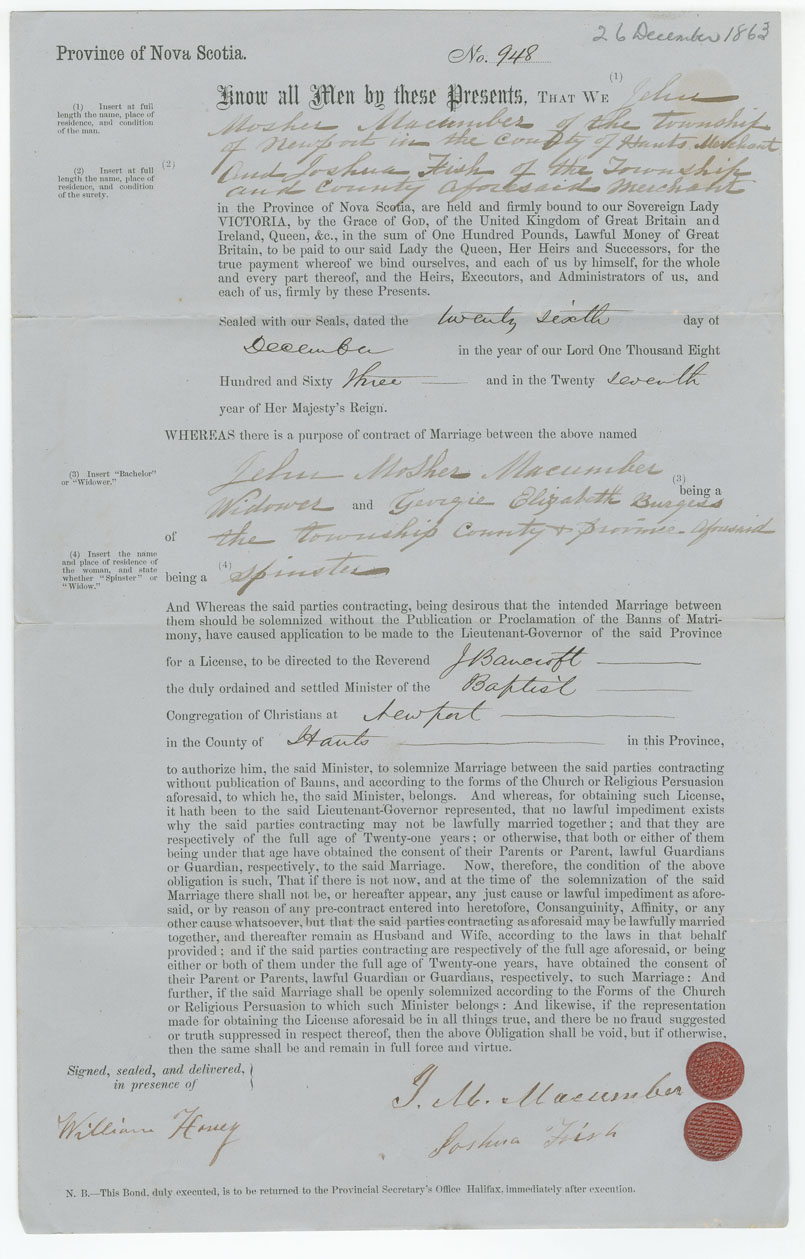 26 December 1863
Province of Nova Scotia.
No. 948
(1)
Know all Men by these Presents, THAT WE John
(1) Insert at full
length the name, place of
residence, and condition
of the man.
Mosher Macumber of the township
of Newport in the County of Hants Merchant
(2) Insert at full
length the name, place of
residence, and condition
of the surety.
(2)
And Joshua Fish of the Township
and County aforesaid Merchant
in the Province of Nova Scotia, are held and firmly bound to our Sovereign Lady
VICTORIA, by the Grace of GOD, of the United Kingdom of Great Britain and
Ireland, Queen, &c., in the sum of One Hundred Pounds, Lawful Money of Great
Britain, to be paid to our said Lady the Queen, Her Heirs and Successors, for the
true payment whereof we bind ourselves, and each of us by himself, for the whole
and every part thereof, and the Heirs, Executors, and Administrators of us, and
each of us, firmly by these Presents.
Sealed with our Seals, dated the twenty sixth day of
December in the year of our Lord One Thousand Eight
Hundred and Sixty three and in the Twenty seventh
year of Her Majesty's Reign.
WHEREAS there is a purpose of contract of Marriage between the above named
(3) Insert "Bachelor"
or "Widower."
John Mosher Macumber
(3)
being a
Widower and Georgie Elizabeth Burgess
of the township County & province aforesaid
(4) Insert the name
and place of residence of
the woman, and state
whether "Spinster" or
"Widow."
(4)
being a spinster
And Whereas the said parties contracting, being desirous that the intended Marriage between
them should be solemnized without the Publication or Proclamation of the Banns of Matri-
mony, have caused application to be made to the Lieutenant-Governor of the said Province
for a License, to be directed to the Reverend J Bancroft
the duly ordained and settled Minister of the Baptist
Congregation of Christians at Newport
in the County of Hants in this Province,
to authorize him, the said Minister, to solemnize Marriage between the said parties contracting
without publication of Banns, and according to the forms of the Church or Religious Persuasion
aforesaid, to which he, the said Minister, belongs. And whereas, for obtaining such License,
it hath been to the said Lieutenant-Governor represented, that no lawful impediment exists
why the said parties contracting may not be lawfully married together; and that they are
respectively of the full age of Twenty-one years; or otherwise, that both or either of them
being under that age have obtained the consent of their Parents or Parent, lawful Guardians
or Guardian, respectively, to the said Marriage. Now, therefore, the condition of the above
obligation is such, That if there is not now, and at the time of the solemnization of the said
Marriage there shall not be, or hereafter appear, any just cause or lawful impediment as afore-
said, or by reason of any pre-contract entered into heretofore, Consanguinity, Affinity, or any
other cause whatsoever, but that the said parties contracting as aforesaid may be lawfully married
together, and thereafter remain as Husband and Wife, according to the laws in that behalf
provided; and if the said parties contracting are respectively of the full age aforesaid, or being
either or both of them under the full age of Twenty-one years, have obtained the consent of
their Parent or Parents, lawful Guardian or Guardians, respectively, to such Marriage: And
further, if the said Marriage shall be openly solemnized according to the Forms of the Church
or Religious Persuasion to which such Minister belongs: And likewise, if the representation
made for obtaining the License aforesaid be in all things true, and there be no fraud suggested
or truth suppressed in respect thereof, then the above Obligation shall be void, but if otherwise,
then the same shall be and remain in full force and virtue.
Signed, sealed, and delivered,
in presence of
J. M. Macumber
William Honey
Joshua Fish
N. B.—This Bond, duly executed, is to be returned to the Provincial Secretary's Office Halifax, immediately after execution.